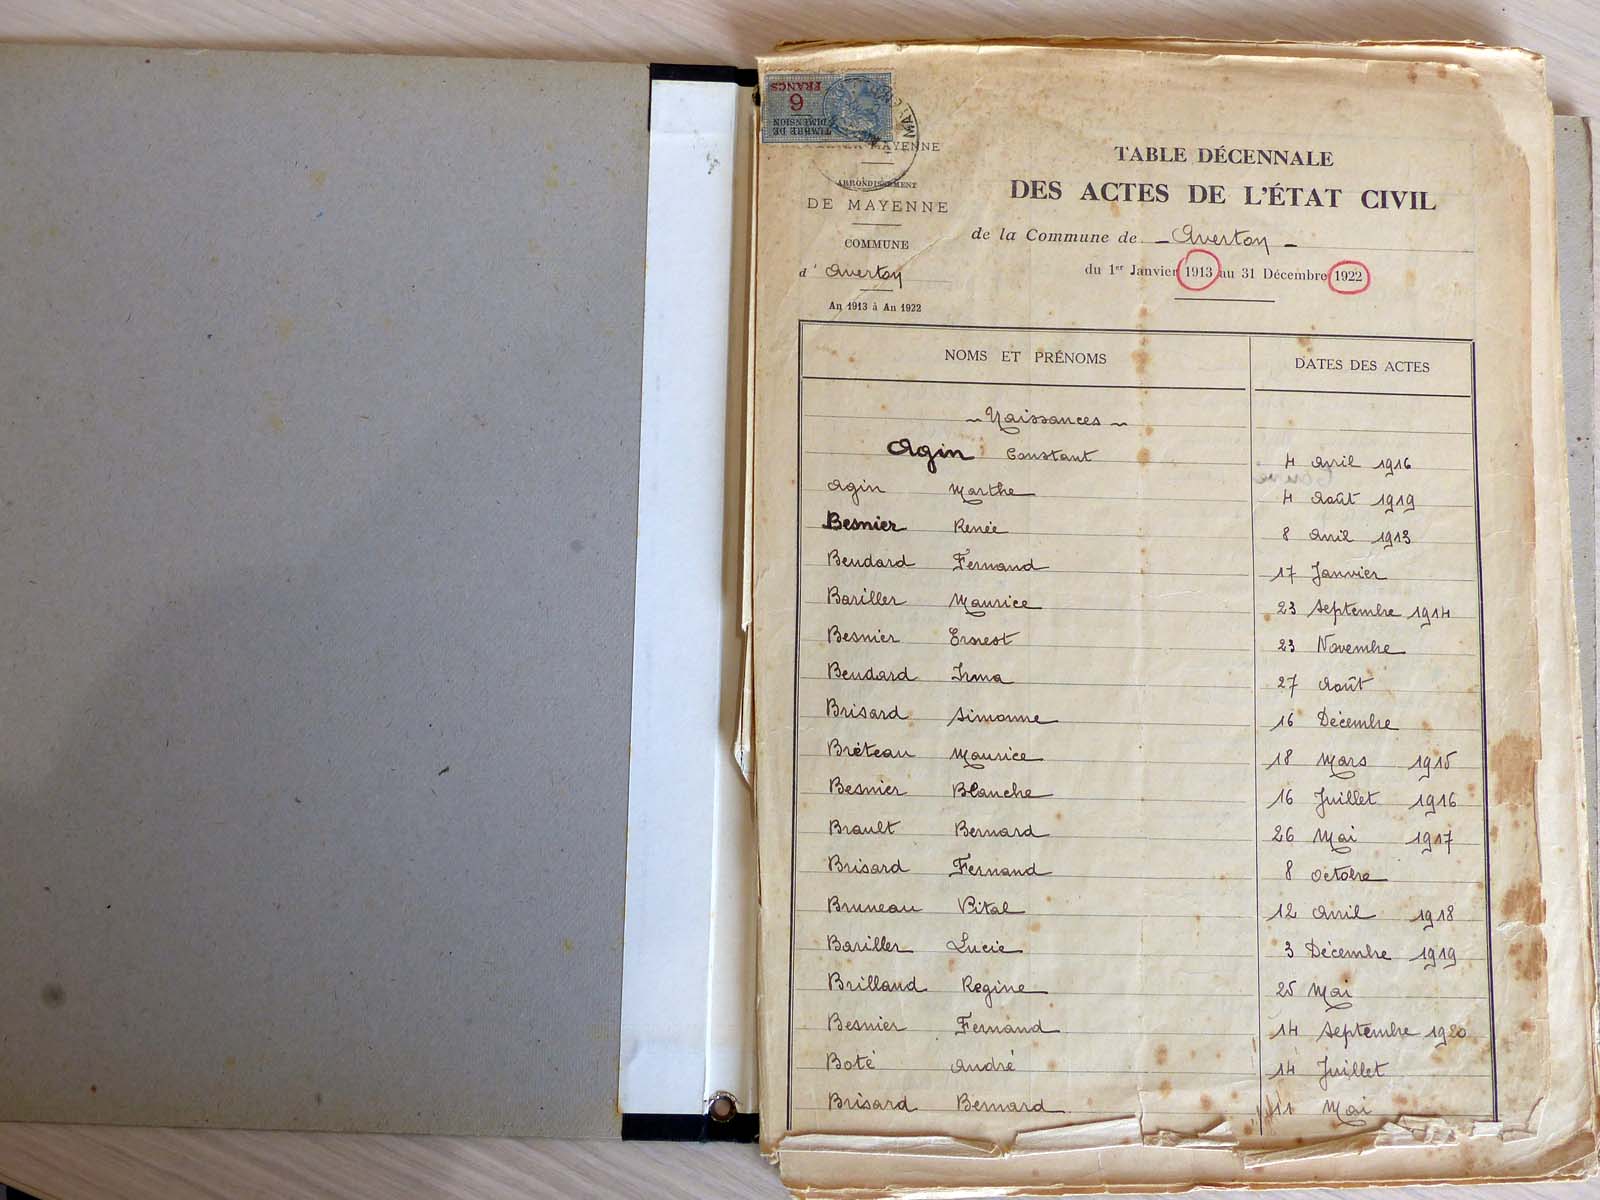 TIMBRE DE
DIMENSION
6
FRANCS
MAYENNE
ARRONDISSEMENT
DE MAYENNE
COMMUNE
d' Averton
An 1913 à An 1922
TABLE DÉCENNALE
DES ACTES DE L'ÉTAT CIVIL
de la Commune de - Averton -
du 1er Janvier 1913 au 31 Décembre 1922
NOMS ET PRÉNOMS DATES DES ACTES
~ Naissances ~
Agin Constant 4 Avril 1916
Agin Marthe 4 Août 1919
Besnier Renée 8 Avril 1913
Beudard Fernand 17 Janvier
Bariller Maurice 23 Septembre 1914
Besnier Ernest 23 Novembre
Beudard Irma 27 Août
Brisard Simonne 16 Décembre
Bréteau Maurice 18 Mars 1915
Besnier Blanche 16 Juillet 1916
Brault Bernard 26 Mai 1917
Brisard Fernand 8 Octobre
Bruneau Vital 12 Avril 1918
Bariller Lucie 3 Décembre 1919
Brilland Regine 25 Mai
Besnier Fernand 14 Septembre 1920
Boté André 14 Juillet
Brisard Bernard 11 Mai